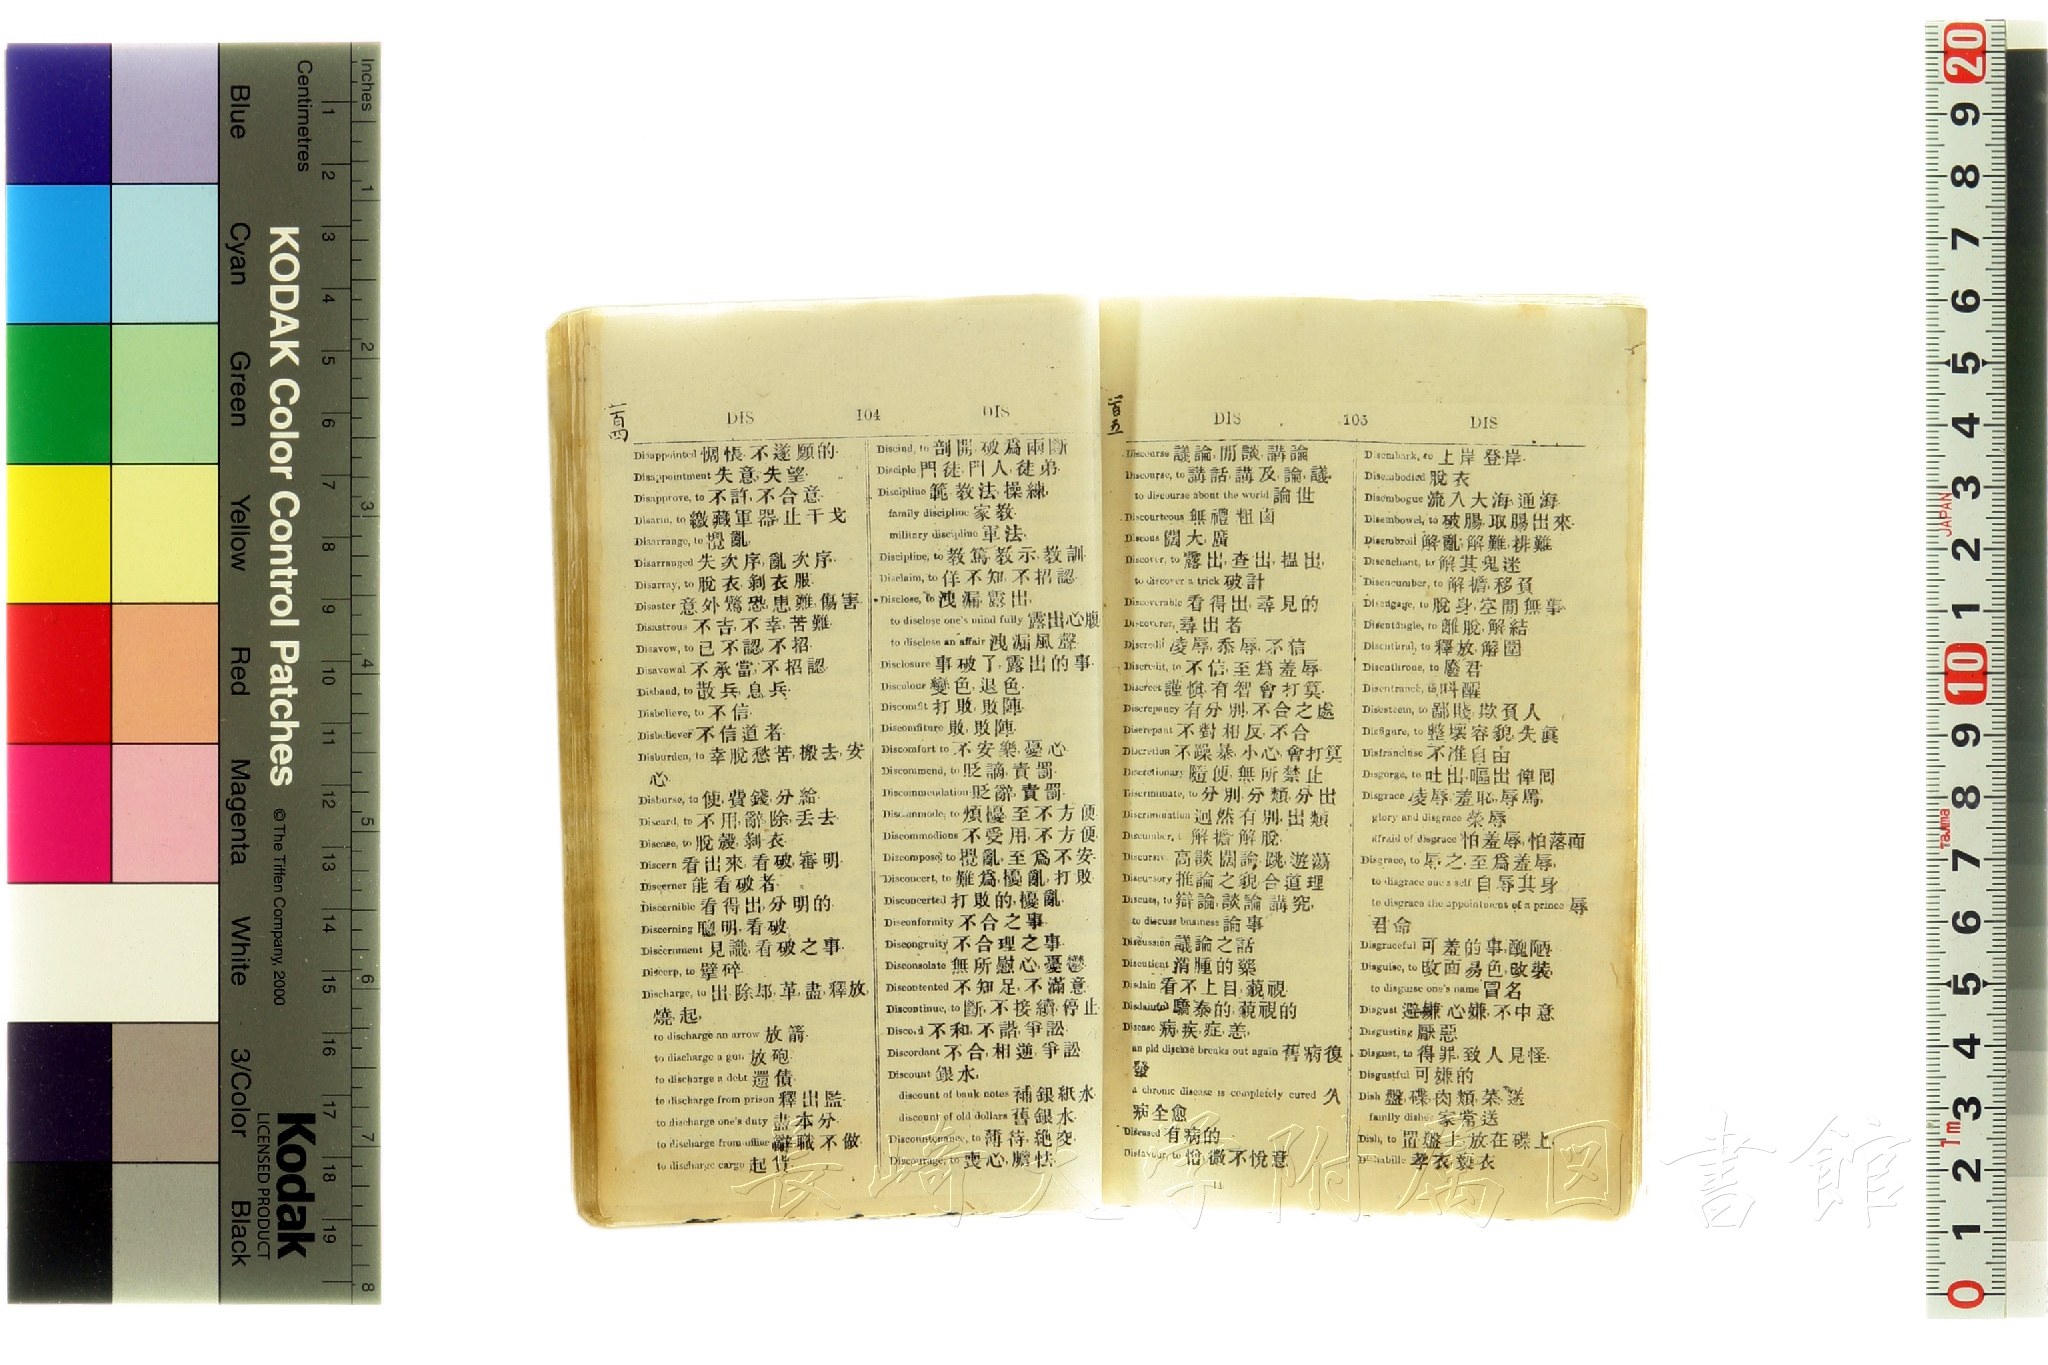 Inches
Centimetres
KODAK Color Control Patches
© The Tiffen Company, 2000
Kodak
LICENSED PRODUCT
Blue
Cyan
Green
Yellow
Red
Magenta
White
3/Color
Black
一百四
DIS 104 DIS
Disappointed 惆悵, 不遂願的
Disappointment 失意, 失望
Disapprove, to 不許, 不合意
Disarm, to 繳藏軍器, 止干戈
Disarrange, to 攪亂
Disarranged 失次序, 亂次序
Disarray, to 脫衣, 剝衣服
Disaster 意外驚恐, 患難, 傷害
Disastrous 不吉, 不幸, 苦難
Disavow, to 己不認, 不招
Disavowal 不承當, 不招認
Disband, to 散兵, 息兵
Disbelieve, to 不信
Disbeliever 不信道者
Disburden, to 幸脫愁苦, 搬去, 安
心
Disburse, to 使, 費錢, 分給
Discard, to 不用, 辭, 除, 丢去
Discase, to 脫殼, 剝衣
Discern 看出來, 看破, 審明
Discerner 能看破者
Discernible 看得出, 分明的
Discerning 聰明, 看破
Discernment 見識, 看破之事
Discerp, to 擘碎
Discharge, to 出, 除, 却, 革, 盡, 釋放,
燒, 起
to discharge an arrow 放箭
to discharge a gun 放砲
to discharge a debt 還債
to discharge from prison 釋出監
to discharge one's duty 盡本分
to discharge from office 辭職不做
to discharge cargo 起貨
Discind, to 剖開, 破爲兩斷
Disciple 門徒, 門人, 徒弟
Discipline 範, 教法, 操練
family discipline 家教
military discipline 軍法
Discipline, to 教篤, 教示, 教訓
Disclaim, to 佯不知, 不招認
Disclose, to 洩漏, 露出
to disclose one's mind fully 露出心腹
to disclose an affair 洩漏風聲
Disclosure 事破了, 露出的事
Discolour 變色, 退色
Discomfit 打敗, 敗陣
Discomfiture 敗, 敗陣
Discomfort to 不安樂, 憂心
Discommend, to 貶謫, 責罰
Discommendation 貶辭, 責罰
Discommode, to 煩擾, 至不方便
Discommodious 不受用, 不方便
Discompose, to 攪亂, 至爲不安
Disconcert, to 難爲, 擾亂, 打敗
Disconcerted 打敗的, 擾亂
Disconformity 不合之事
Discongruity 不合理之事
Disconsolate 無所慰心, 憂鬱
Discontented 不知足, 不滿意
Discontinue, to 斷, 不接續, 停止
Discord 不和, 不諧, 爭訟
Discordant 不合, 相逆, 爭訟
Discount 銀水
discount of bank notes 補銀紙水
discount of old dollars 舊銀水
Discountenance, to 薄待, 絶交
Discourage, to 喪心, 膽怯
一百五
DIS 105 DIS
Discourse 議論, 閒談, 講論
Discourse, to 講話, 講及, 論, 議
to discourse about the world 論世
Discourteous 無禮, 粗鹵
Discous 闊, 大, 廣
Discover, to 露出, 查出, 揾出
to discover a trick 破計
Discoverable 看得出, 尋見的
Discoverer, 尋出者
Discredit 凌辱, 忝辱, 不信
Discredit, to 不信, 至爲羞辱
Discreet 謹愼, 有智, 會打算
Discrepancy 有分別, 不合之處
Discrepant 不對, 相反, 不合
Discretion 不躁暴, 小心, 會打算
Discretionary 隨便, 無所禁止
Discriminate, to 分別, 分類, 分出
Discrimination 迥然有別, 出類
解擔, 解脫
Discursive 高談闊論, 跳, 遊蕩
Discursory 推論之貌, 合道理
Discuss, to 辯論, 談論, 講究
to discuss business 論事
Discussion 議論之話
Discutient 消腫的藥
Disdain 看不上目, 藐視
Disdainful 驕泰的, 藐視的
Disease 病, 疾, 症, 恙
an old disease breaks out again 舊病復
發
a chronic disease is completely cured 久
病全愈
Diseased 有病的
Disfavour, to 不悅意
11
Disembark, to 上岸, 登岸
Disembodied 脫衣
Disembogue 流入大海, 通海
Disembowel, to 破腸, 取腸出來
Disembroil 解亂, 解難, 排難
Disenchant, to 解其鬼迷
Disencumber, to 解擔, 移負
Disengage, to 脫身, 空閒無事
Disentangle, to 離脫, 解結
Disenthral, to 釋放, 解圍
Disenthrone, to 廢君
Disentranch, to 叫醒
Disesteem, to 鄙賤, 欺負人
Disfigure, to 整壞容貌, 失眞
Disfranchise 不准自由
Disgorge, to 吐出, 嘔出
Disgrace 凌辱, 羞恥, 辱罵
glory and disgrace 榮辱
afraid of disgrace 怕羞辱, 怕落面
Disgrace, to 辱之, 至爲羞辱
to disgrace one's self 自辱其身
to disgrace the appointment of a prince 辱
君命
Disgraceful 可羞的事, 醜陋
Disguise, to 改面易色, 改裝
to disguise one's name 冒名
Disgust 避嫌, 心嫌, 不中意
Disgusting 厭惡
Disgust, to 得罪, 致人見怪
Disgustful 可嫌的
Dish 盤, 碟, 肉類, 菜, 送
family dishes 家常送
Dish, to 置盤上, 放在碟上
Dishabille 孝衣, 褻衣
JAPAN
Tajima
1m
長崎大学附属図書館